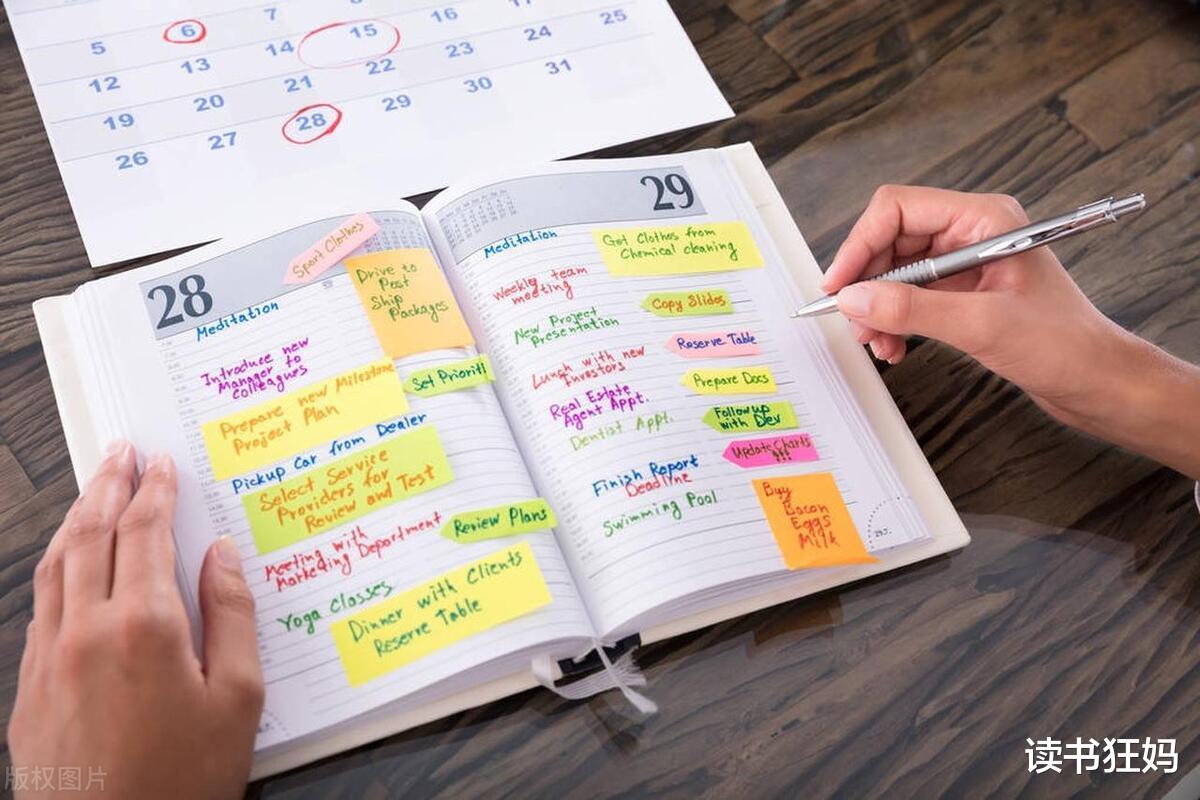 6 7 15 16 17
5 14 25
12 13 22 23 24
19 20 21 29 30 31
26 27 28
28
Sport Clothes
Meditation
Drive to
Post
Ship
Packages
Introduce new
Manager to
Colleagues
Set Priority
Prepare new Milestone
Project Plan
Pickup Car from Dealer
Select Service
Providers for
Review and Test
Review Plans
Meeting with
Marketing Department
Yoga Classes
Dinner with Clients
Reserve Table
29
Meditation
Get Clothes from
Chemical cleaning
Weekly team
meeting
Copy Slides
New Project
Presentation
Reserve Table
Lunch with new
Investors
Prepare Docs
Real Estate
Agent Appt.
Follow up
with Dev
Dentist Appt.
Update Charts
!!!
Finish Report
Deadline
Swimming Pool
Buy
Bacon
Eggs
Milk
版权图片
读书狂妈